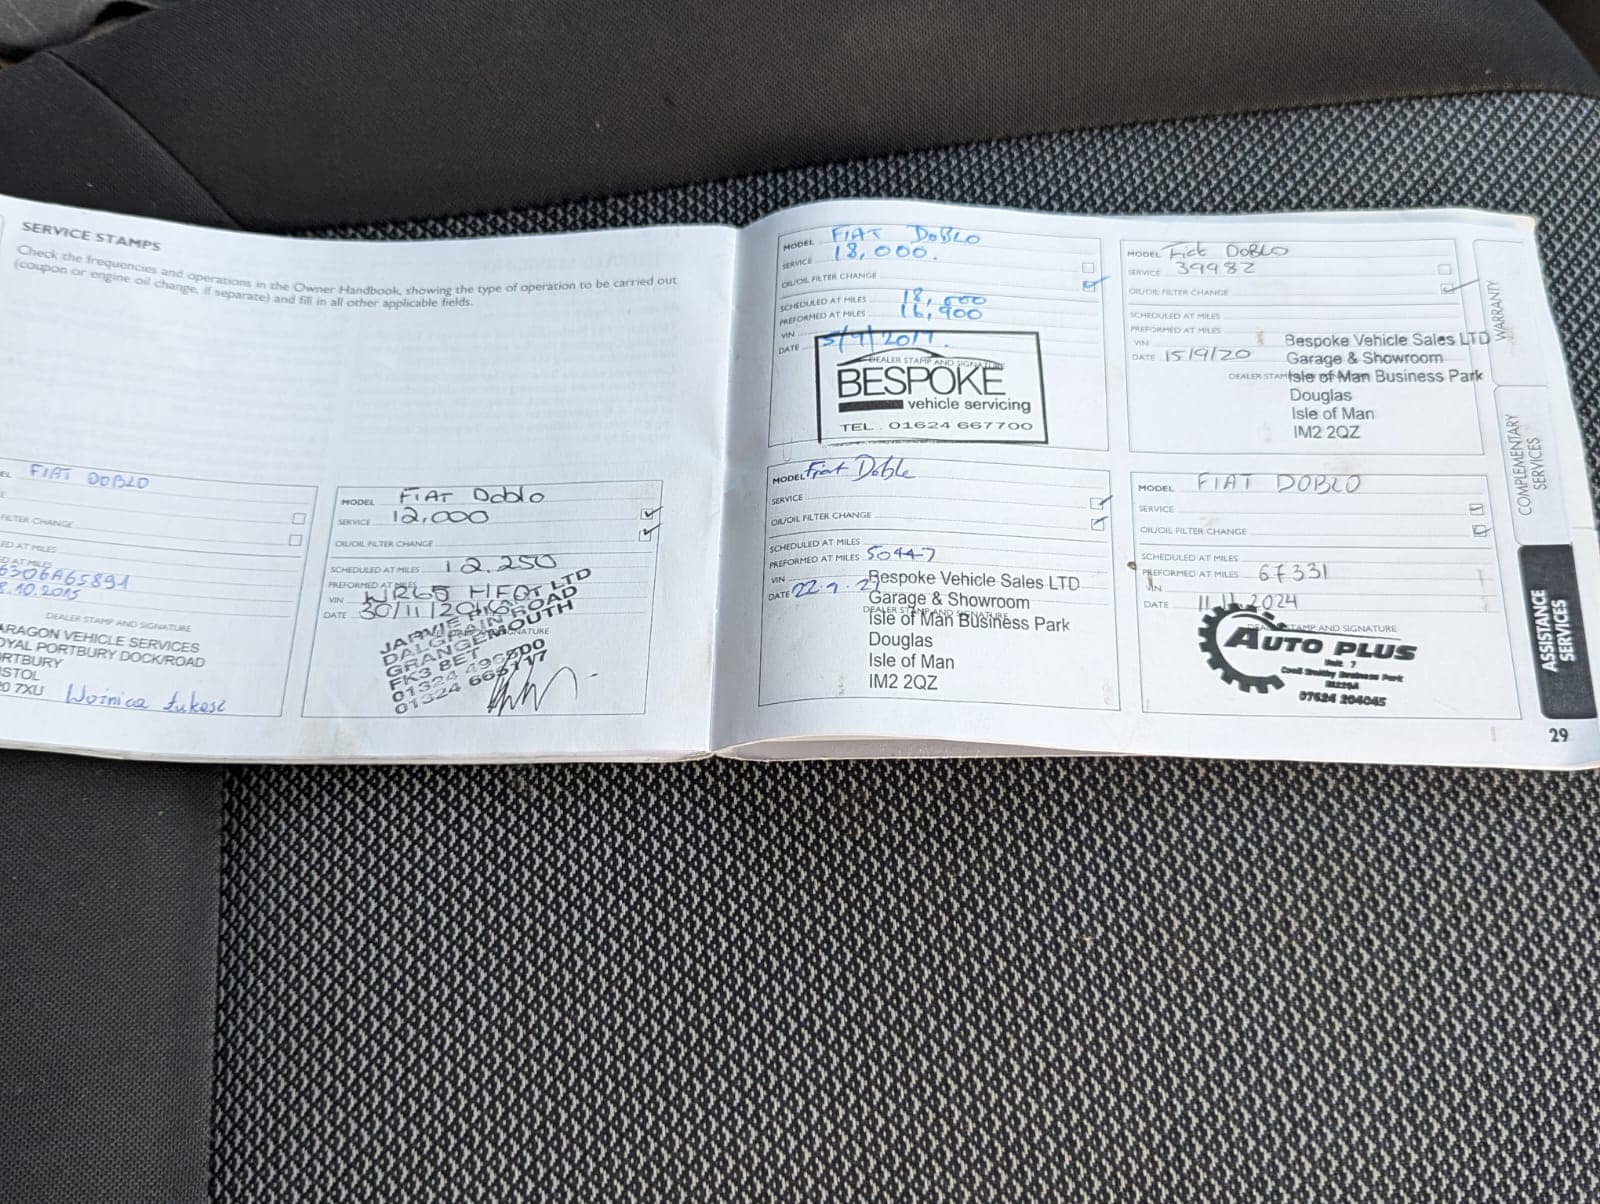 SERVICE STAMPS
Check the frequencies and operations in the Owner Handbook, showing the type of operation to be carried out
(coupon or engine oil change, if separate) and fill in all other applicable fields.
EL FIAT DOBLO
FILTER CHANGE
ED AT MILES
D AT MILES
6306A65891
8.10.2015
DEALER STAMP AND SIGNATURE
ARAGON VEHICLE SERVICES
OYAL PORTBURY DOCK/ROAD
RTBURY
STOL
0 7XU
MODEL FIAT Doblo
SERVICE 12,000
OIL/OIL FILTER CHANGE
SCHEDULED AT MILES 12.250
PREFORMED AT MILES
VIN
DATE 30/11/2016
LTD
ROAD
GRANGEMOUTH
FK3 8ET
MODEL FIAT DOBLO
SERVICE 18,000.
OIL/OIL FILTER CHANGE
SCHEDULED AT MILES 18,000
PREFORMED AT MILES 16,900
VIN
DATE 5/9/2017.
DEALER STAMP AND SIGNATURE
BESPOKE
vehicle servicing
TEL. 01624 667700
MODEL Fiat Doblo
SERVICE
OIL/OIL FILTER CHANGE
SCHEDULED AT MILES
PREFORMED AT MILES 50447
VIN
DATE 22.9.2
Bespoke Vehicle Sales LTD
Garage & Showroom
DEALER STAMP AND SIGNATURE
Isle of Man Business Park
Douglas
Isle of Man
IM2 2QZ
MODEL Fiat DOBLO
SERVICE 39982
OIL/OIL FILTER CHANGE
SCHEDULED AT MILES
PREFORMED AT MILES
VIN
DATE 15/9/20
Bespoke Vehicle Sales LTD
Garage & Showroom
DEALER STAMP
Isle of Man Business Park
Douglas
Isle of Man
IM2 2QZ
MODEL FIAT DOBLO
SERVICE
OIL/OIL FILTER CHANGE
SCHEDULED AT MILES
PREFORMED AT MILES 67331
VIN
DATE 2024
STAMP AND SIGNATURE
AUTO PLUS
Unit 7
Business Park
07624 204045
WARRANTY
COMPLEMENTARY
SERVICES
ASSISTANCE
SERVICES
29